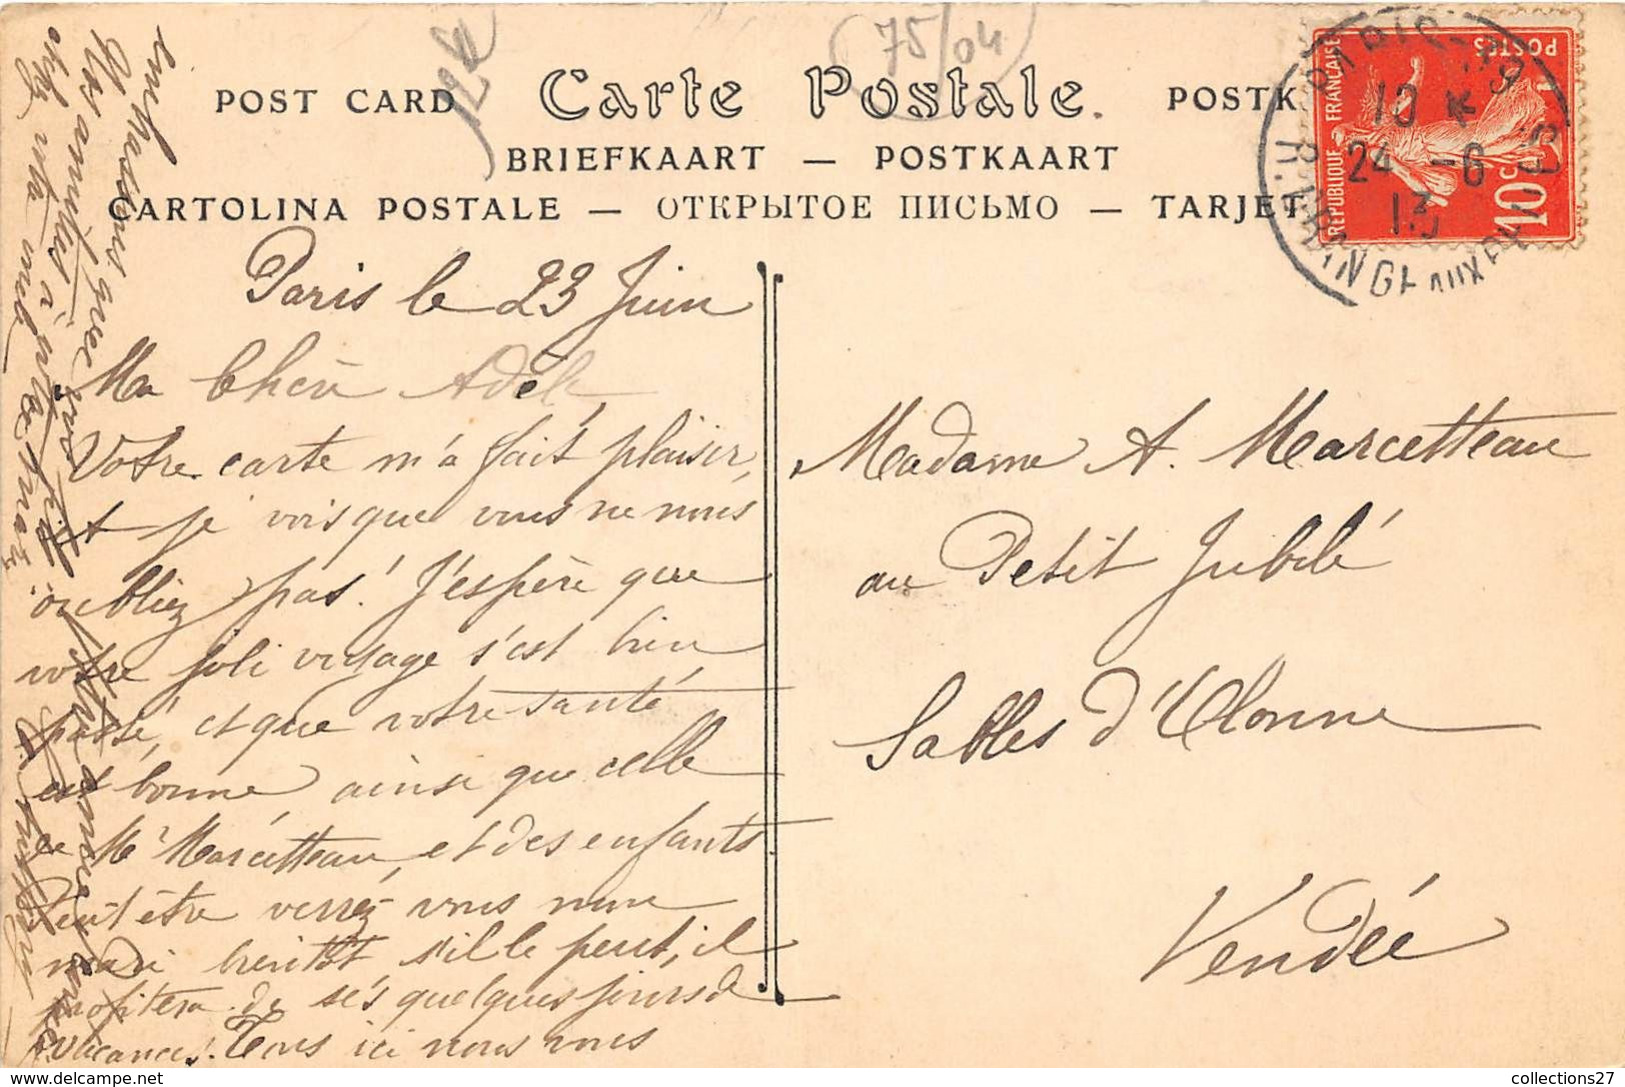 75/04
POST CARD Carte Postale. POSTK
BRIEFKAART — POSTKAART
CARTOLINA POSTALE — ОТКРЫТОЕ ПИСЬМО — TARJET
REPUBLIQUE FRANÇAISE
POSTES
10 C
10
24 -6
13
Paris le 23 Juin
Ma Chère Adèle,
Votre carte m'a fait plaisir,
et je vois que vous ne nous
oubliez pas! J'espère que
votre joli voyage s'est bien
passé, et que votre santé
est bonne ainsi que celle
de Mr Marcetteau, et des enfants
Peut être verrez vous mon
mari bientôt s'il le peut, il
profitera de ses quelques jours de
vacances! Tous ici nous vous
embrassons
Nos amitiés à
chez votre
Madame A. Marcetteau
au Petit Jubilé
Sables d'Olonne
Vendée
collections27